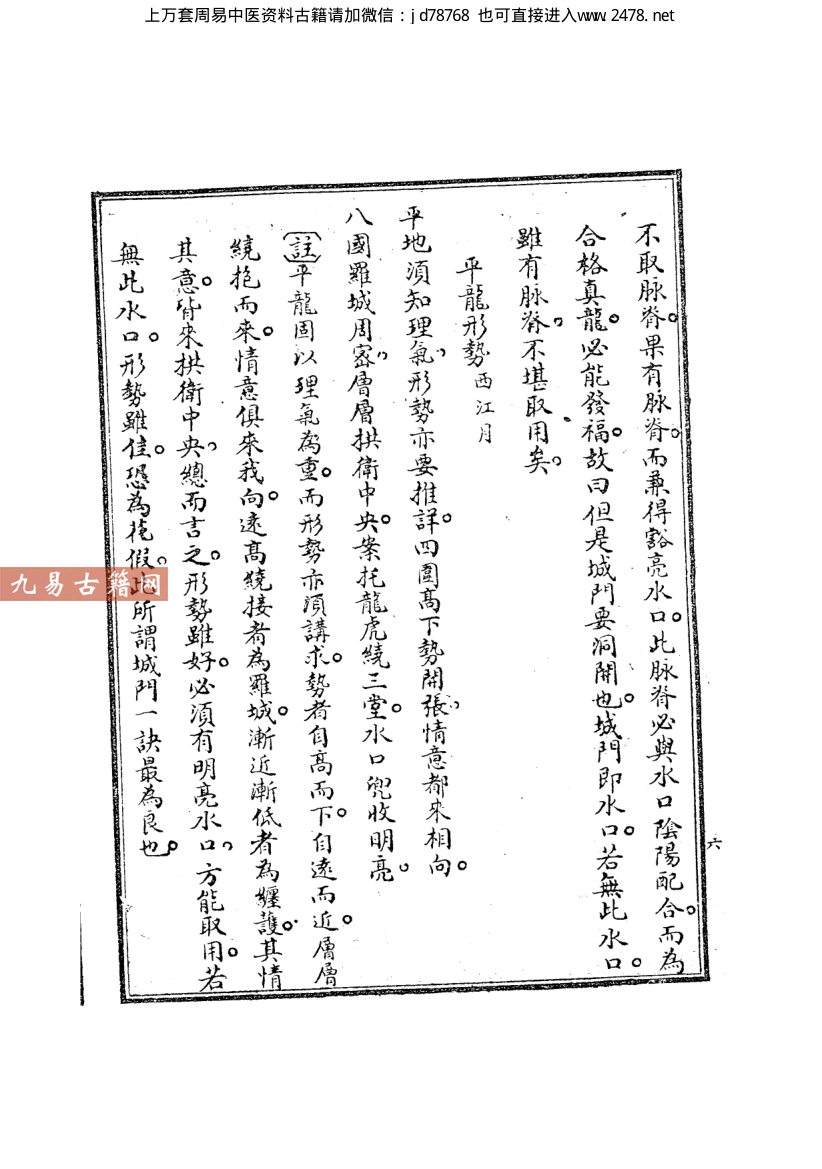 上万套周易中医资料古籍请加微信：jd78768 也可直接进入www.2478.net
不取脉脊。果有脉脊。而兼得豁亮水口。此脉脊必與水口陰陽配合。而為
合格真龍。必能發福。故曰但是城門要洞開也。城門即水口。若無此水口。
雖有脉脊。不堪取用矣。
平龍形勢 西江月
平地須知理氣。形勢亦要推詳。四圍高下勢開張。情意都來相向。
八國羅城周密。層層拱衛中央。案托龍虎繞三堂。水口兜收明亮。
註 平龍固以理氣為重。而形勢亦須講求。勢者自高而下。自遠而近。層層
繞抱而來。情意俱來我向。遠高繞接者為羅城。漸近漸低者為纏護。其情
其意。皆來拱衛中央。總而言之。形勢雖好。必須有明亮水口。方能取用。若
無此水口。形勢雖佳。恐為花假。此所謂城門一訣最為良也。
六
九易古籍网